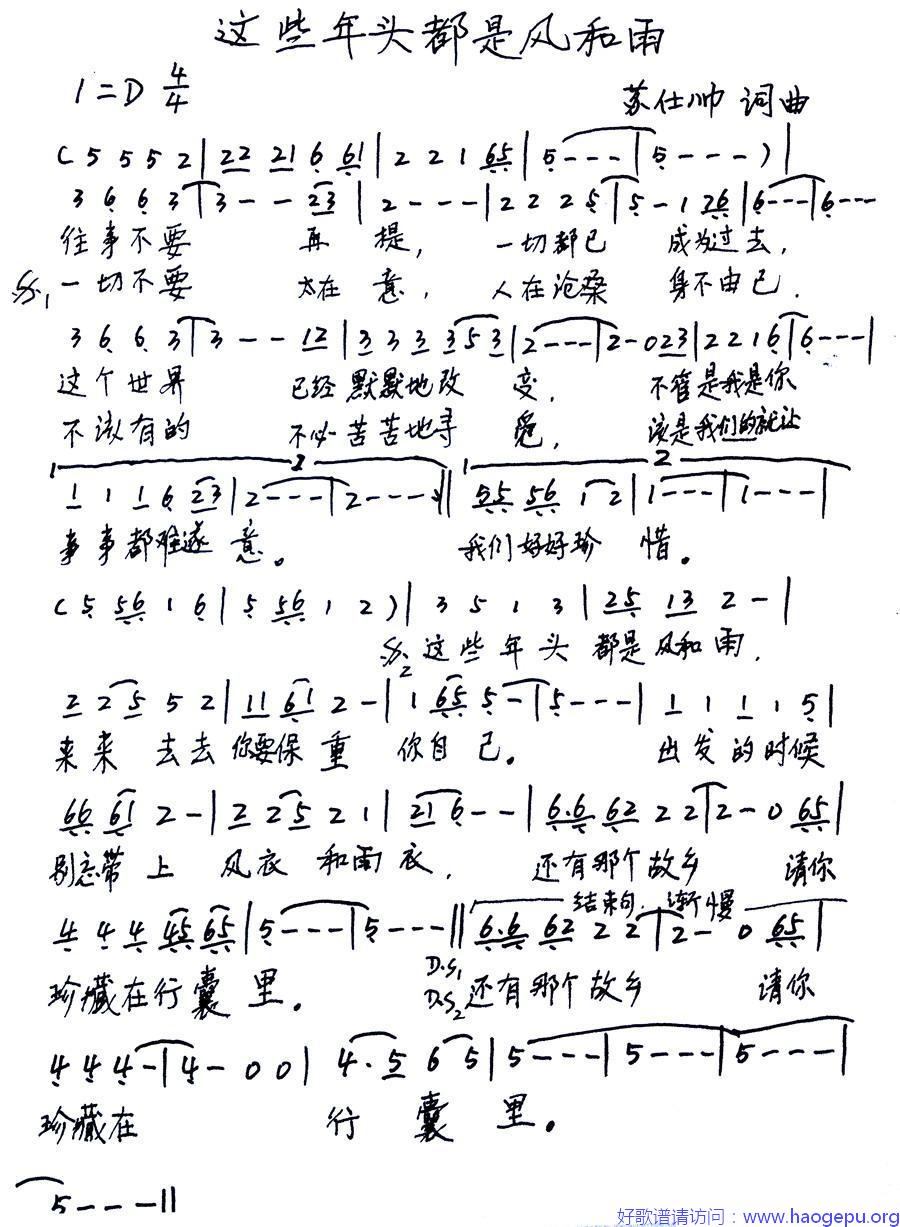 这些年头都是风和雨
1=D 4/4
苏仕帅 词曲
( 5 5 5 2 | 22 21 6 61 | 2 2 1 65 | 5 - - - | 5 - - - ) |
3 6 6 3 | 3 - - 23 | 2 - - - | 2 2 2 5 | 5 - 1 26 | 6 - - - | 6 - - -
往事不要 再 提, 一切都已 成为过去,
一切不要 太在 意, 人在沧桑 身不由已.
3 6 6 3 | 3 - - 12 | 3 3 3 3 5 3 | 2 - - - | 2 - 0 23 | 2 2 1 6 | 6 - - - |
这个世界 已经默默地改 变, 不管是我是你
不该有的 不必苦苦地寻 觅, 该是我们的就让
1 2 1 2
1 1 1 6 23 | 2 - - - | 2 - - - :|| 55 56 1 2 | 1 - - - | 1 - - - |
事事都难遂 意。 我们好好珍 惜。
( 5 56 1 6 | 5 56 1 2 ) | 3 5 1 3 | 25 13 2 - |
这些年头 都是风和雨,
2 2 5 5 2 | 11 61 2 - | 1 65 5 - | 5 - - - | 1 1 1 1 5 |
来来 去去你要保 重 你自己。 出发的时候
66 61 2 - | 2 2 5 2 1 | 21 6 - - | 6.6 62 2 2 | 2 - 0 65 |
别忘带 上 风衣 和雨衣, 还有那个故乡 请你
结束句.渐慢
4 4 4 45 65 | 5 - - - | 5 - - - || 6.6 62 2 2 | 2 - 0 65 |
D.S1
珍藏在行囊 里。 D.S2 还有那个故乡 请你
4 4 4 - | 4 - 0 0 | 4 . 5 6 5 | 5 - - - | 5 - - - | 5 - - - |
珍藏在 行 囊 里。
5 - - - ||
好歌谱请访问：www.haogepu.org